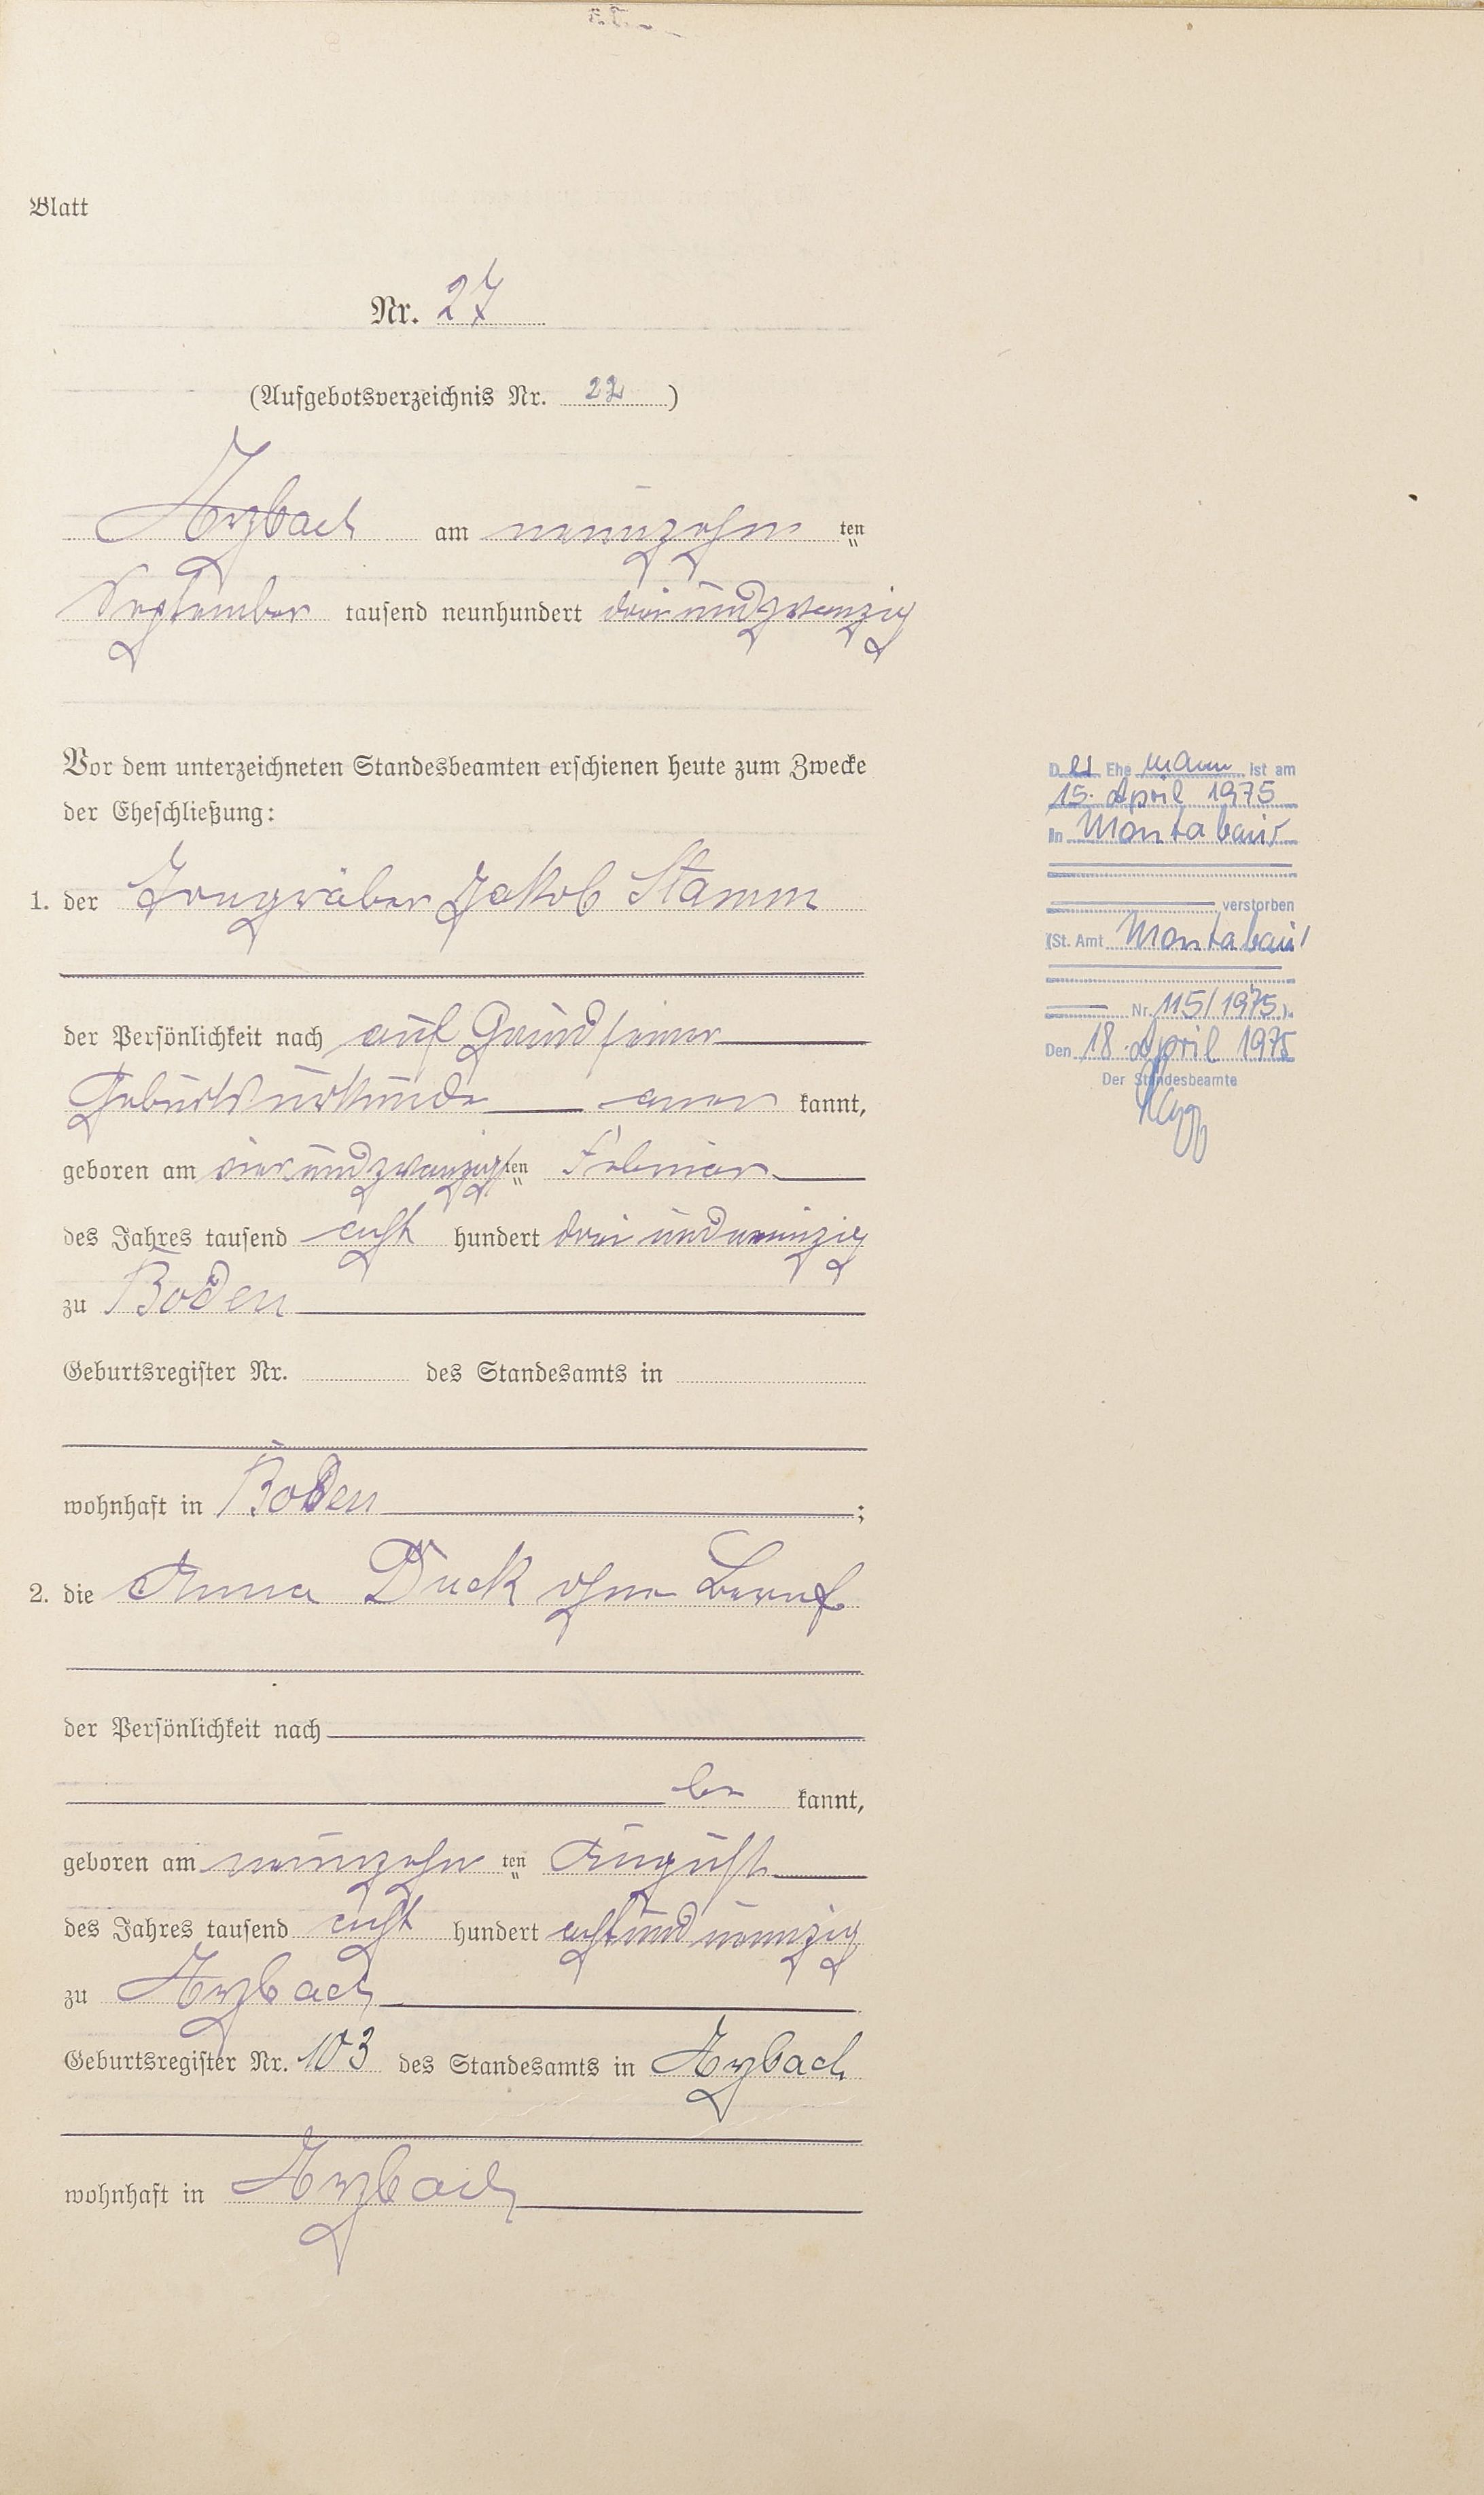 Blatt
Nr. 27
(Aufgebotsverzeichnis Nr. 22)
Arzbach am neunzehn ten
September tausend neunhundert dreiundzwanzig
Vor dem unterzeichneten Standesbeamten erschienen heute zum Zwecke
der Eheschließung:
1. der Tongräber Jakob Stamm
der Persönlichkeit nach auf Grund seiner
Geburtsurkunde aner kannt,
geboren am vierundzwanzigsten Februar
des Jahres tausend acht hundert dreiundneunzig
zu Boden
Geburtsregister Nr. des Standesamts in
wohnhaft in Boden ;
2. die Anna Duck ohne Beruf
der Persönlichkeit nach
be kannt,
geboren am neunzehn ten August
des Jahres tausend acht hundert achtundneunzig
zu Arzbach
Geburtsregister Nr. 103 des Standesamts in Arzbach
wohnhaft in Arzbach
Der Ehe mann ist am
15. April 1975
in Montabaur
verstorben
(St. Amt Montabaur
Nr. 115/1975).
Den 18. April 1975
Der Standesbeamte